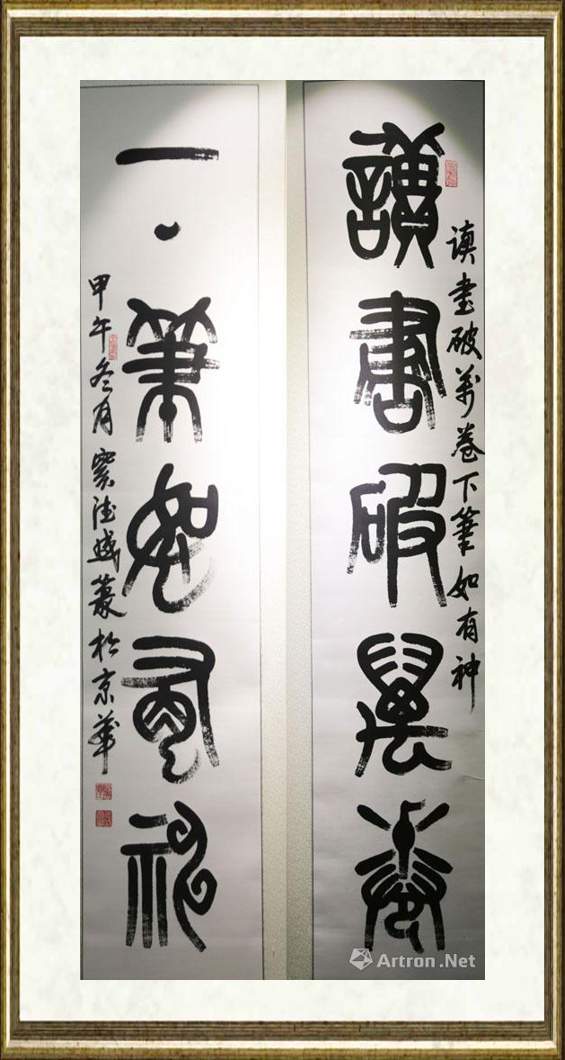 讀書破萬卷
读書破萬卷下筆如有神
下筆如有神
甲午冬月寶德盛篆於京華
Artron.Net